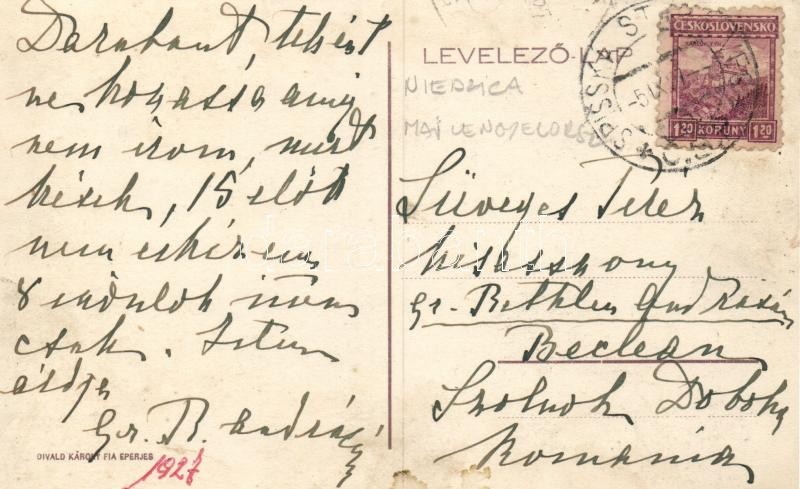 Darabont, tehént
ne hozassa amíg
nem írom, mert
késik, 15 előtt
nem
8 indulok innen
csak. Isten
áldja
Gr. B. Andrásné
DIVALD KÁROLY FIA EPERJES
1927
LEVELEZŐ-LAP
NIEDZICA
MAI LENGYELORSZ
ČESKOSLOVENSKO
1.20 KORUNY 1.20
SPIŠSKÁ STARÁ VES
Süveges Terez
kisasszony
Gr. Bethlen Andrásné
Beclean
Szolnok Doboka
Romania